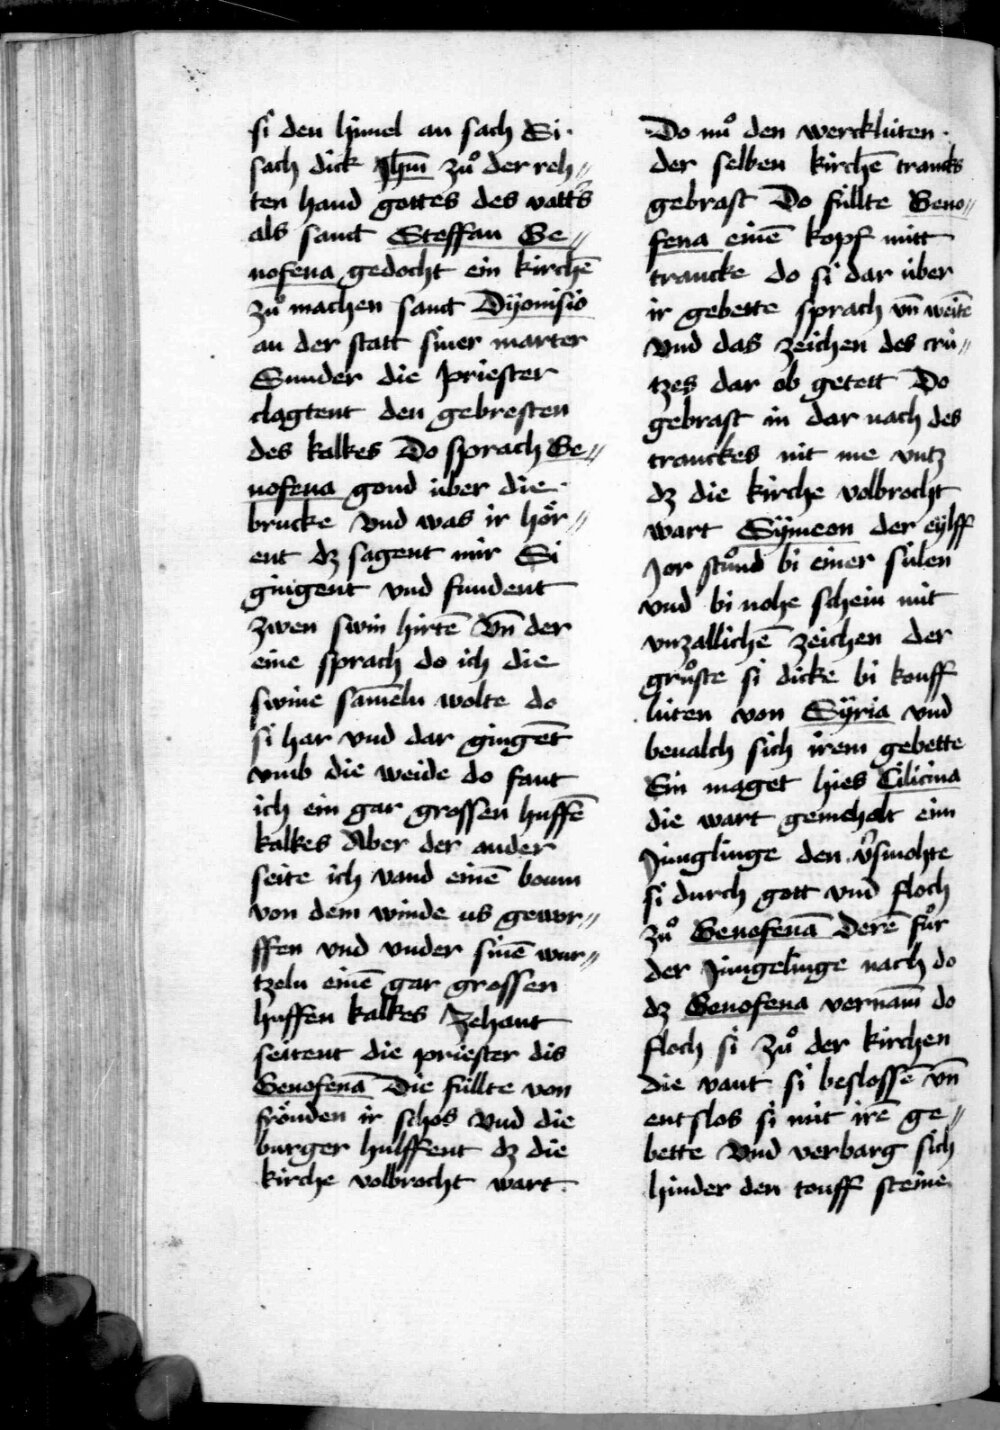 si den himel an sach Si
sach dick Jhm̄ zuͦ der reh⸗
ten hand gottes des vatt's
als sanct Steffan Ge⸗
nofena gedocht ein kirchē
zuͦ machen sanct Dÿonisio
an der statt siner marter
Sunder die priester
clagtent den gebresten
des kalkes Do sprach Ge⸗
nofena gond über die
brucke Vnd was ir hör⸗
ent dz sagent mir Si
gingent vnd fundent
zwen swin hirtē Vn̄ der
eine sprach do ich die
swine sam̄eln wolte do
si har vnd dar gingēt
vmb die weide do fant
ich ein gar grossen huffē
kalkes Aber der ander
seite ich vand einē boum
von dem winde us gewor⸗
ffen vnd vnder sinē wur⸗
tzeln einē gar grossen
huffen kalkes Zehant
seitent die priester dis
Genofenā Die füllte von
frönden ir schos Vnd die
burger hulffent dz die
kirche volbrocht wart
Do nuͦ den wercklüten
der selben kirchē trancks
gebrast Do füllte Geno⸗
fena einē kopf mitt
trancke do si dar über
ir gebette sprach vn̄ weitē
Vnd das zeichen des crü⸗
tzes dar ob getett Do
gebrast in dar nach des
tranckes nit me vntz
dz die kirche volbrocht
wart Sÿmeon der eÿlff
Jor stuͦnd bi einer sülen
vnd bi nohe schein mit
vnzallichē zeichen der
gruͦste si dicke bi kouff
lüten von Sÿria vnd
beualch sich irem gebette
Ein maget hies Cilicina
die wart gemehelt eim
Jünglinge den v'smohte
si durch gott vnd floch
zuͦ Genofenā Derē fuͦr
der Jüngelinge nach do
dz Genofena vernam̄ do
floch si zuͦ der kirchen
die vant si beslossē vn̄
entslos si mit irē ge⸗
bette Vnd verbarg sich
hinder den touff steine